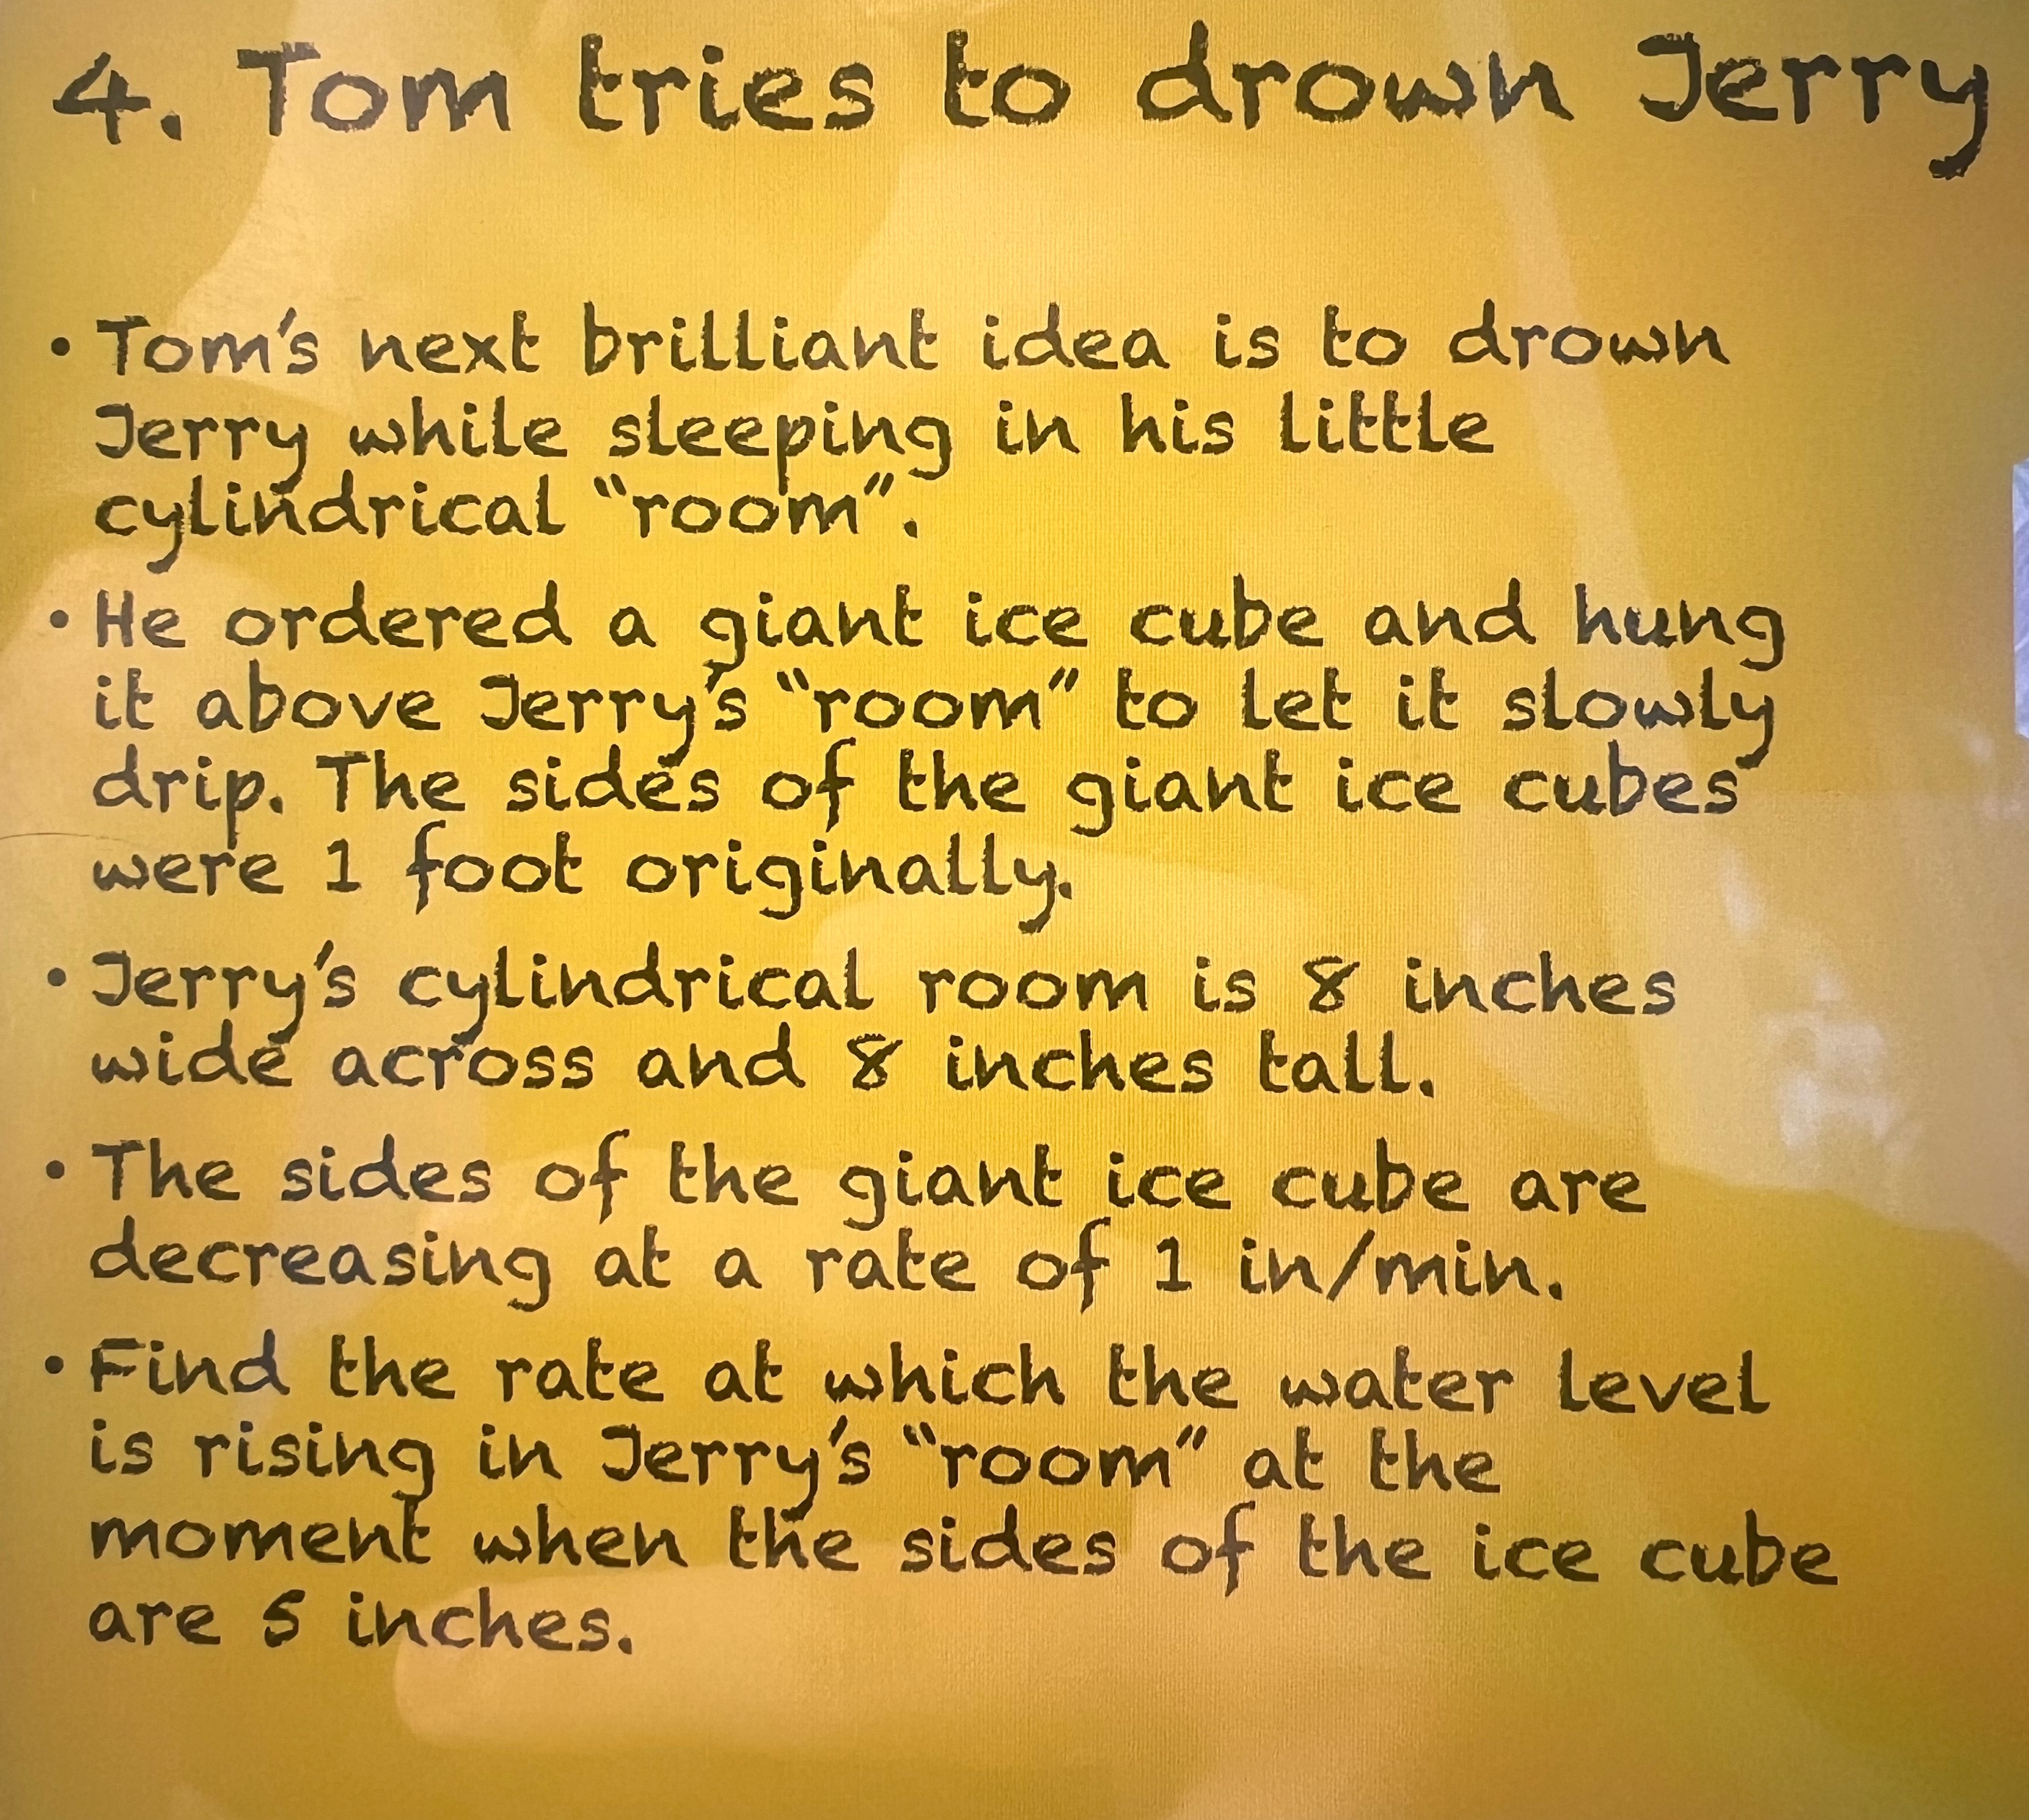 4. Tom tries to drown Jerry
• Tom's next brilliant idea is to drown
Jerry while sleeping in his little
cylindrical “room”.
• He ordered a giant ice cube and hung
it above Jerry's “room” to let it slowly
drip. The sides of the giant ice cubes
were 1 foot originally.
• Jerry's cylindrical room is 8 inches
wide across and 8 inches tall.
• The sides of the giant ice cube are
decreasing at a rate of 1 in/min.
• Find the rate at which the water level
is rising in Jerry's “room” at the
moment when the sides of the ice cube
are 5 inches.